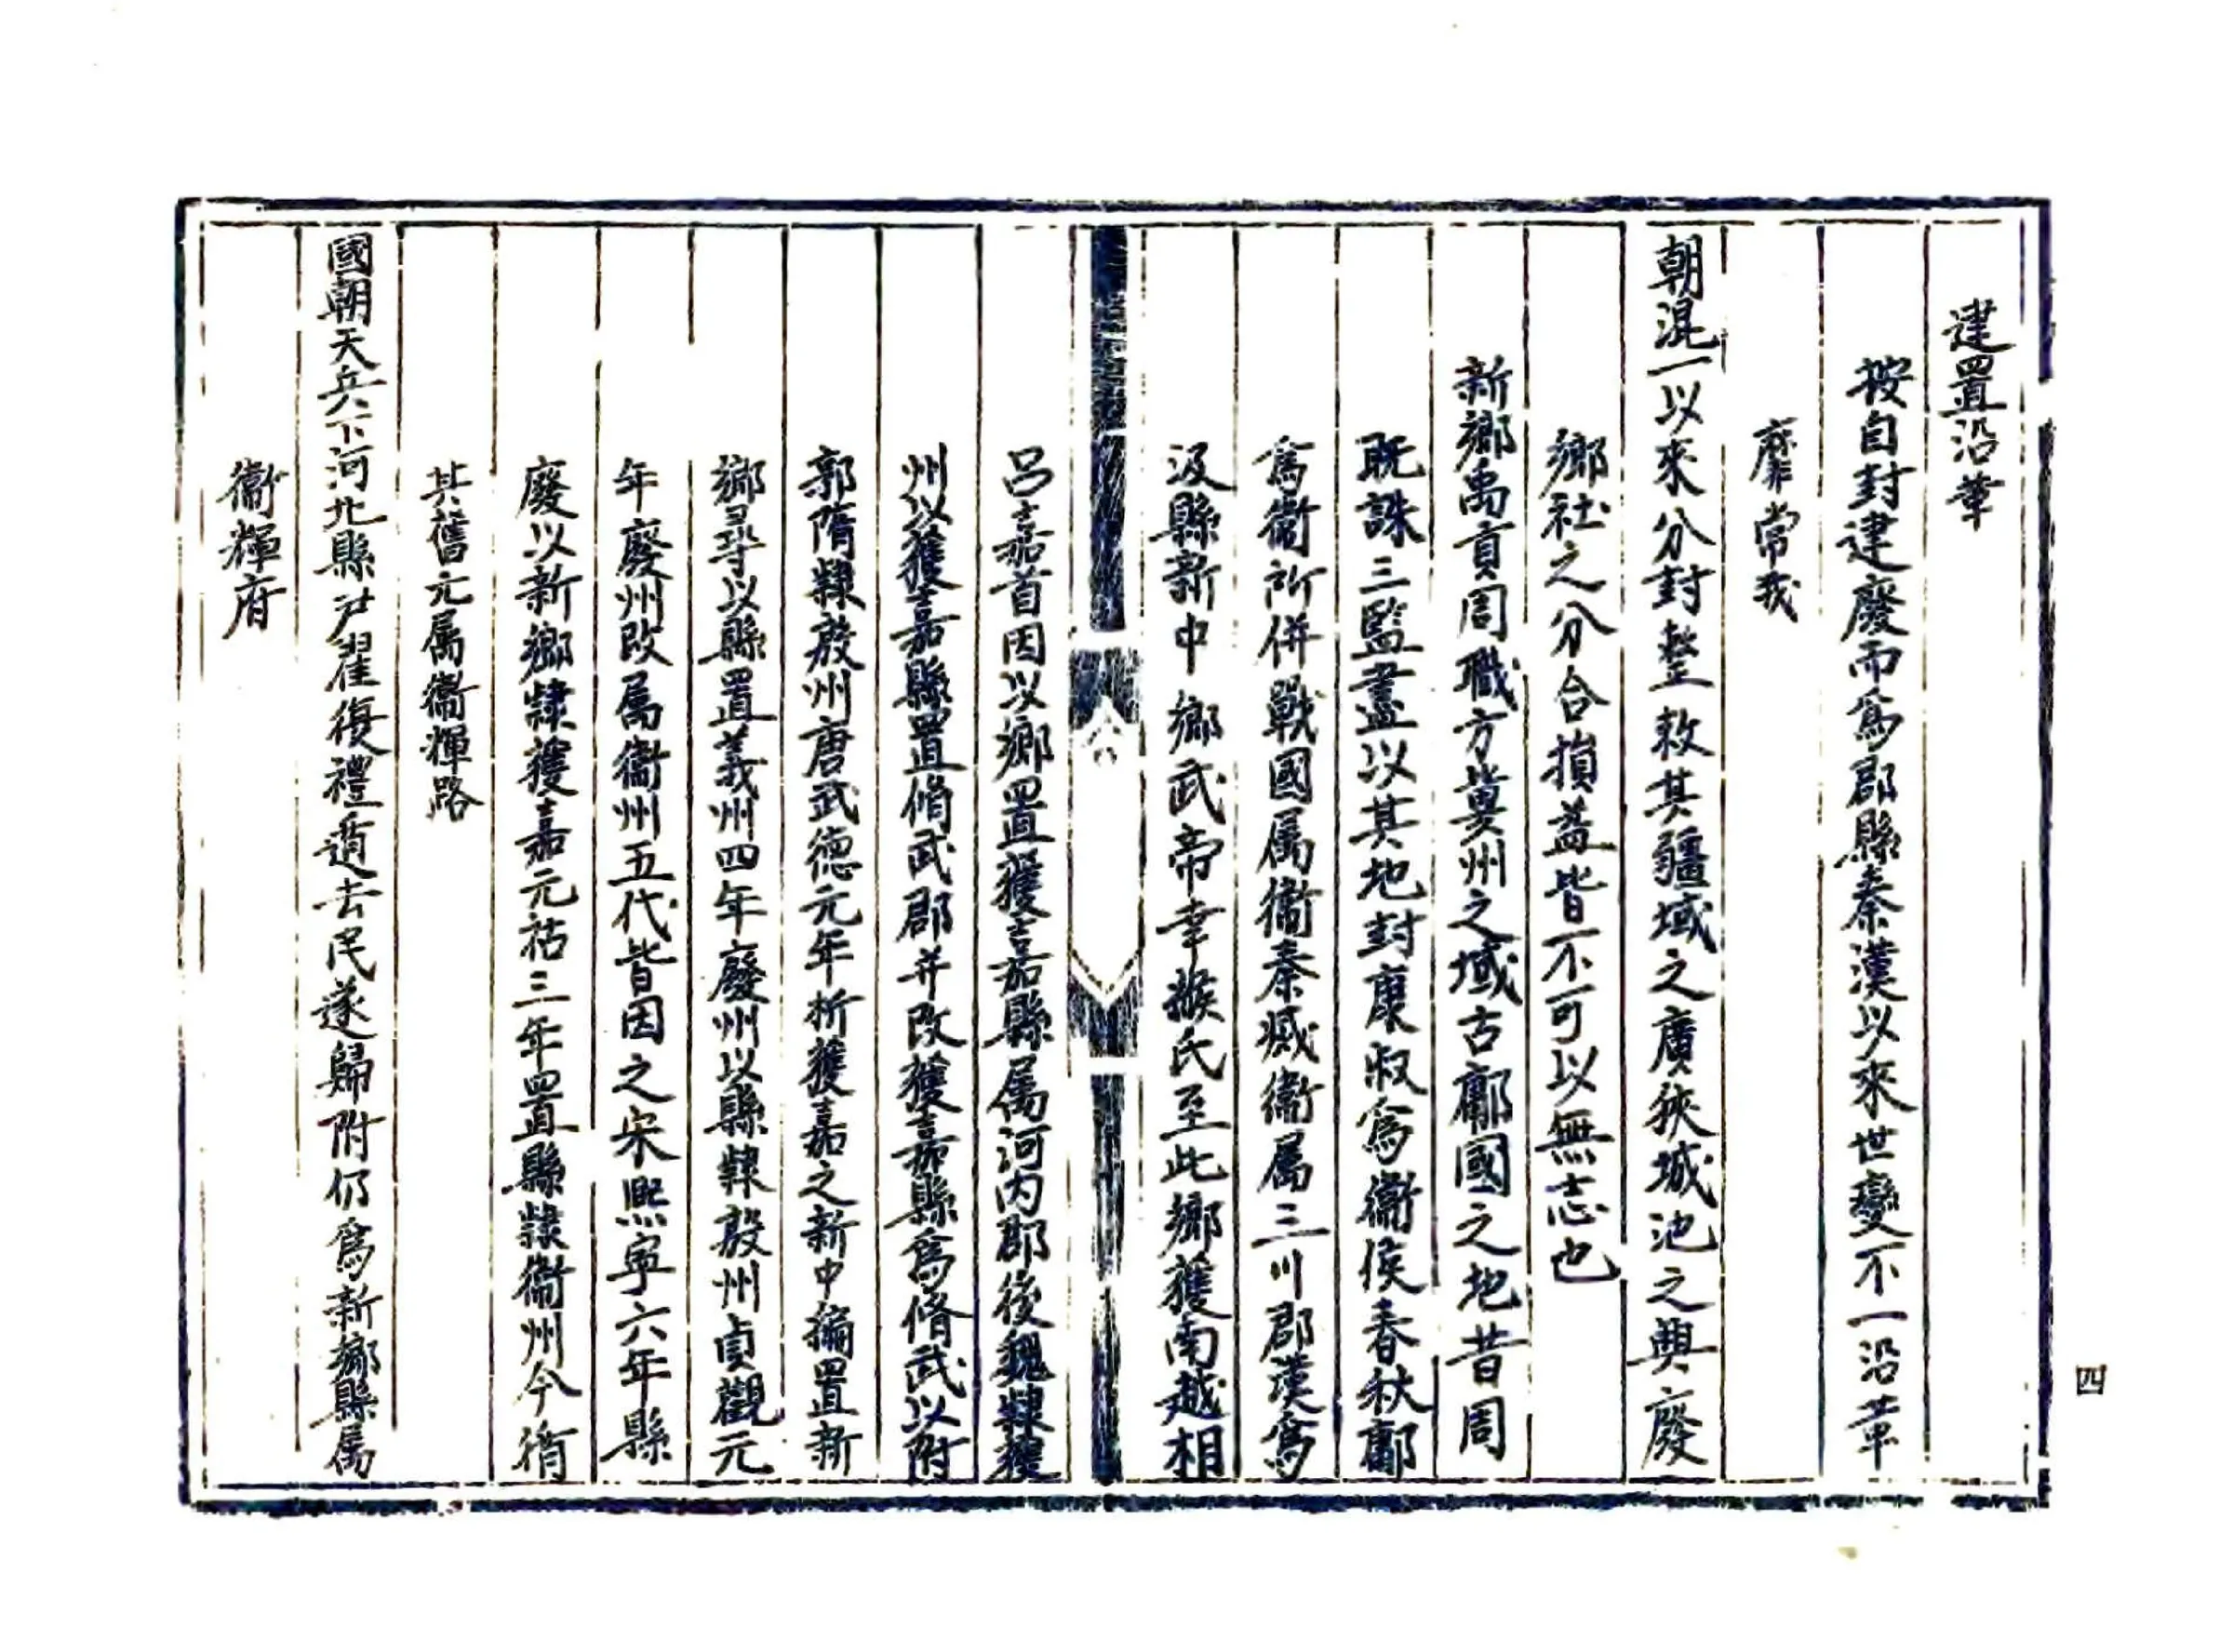 建置沿革
按自封建廢而爲郡縣秦漢以來世變不一沿革
靡常我
朝混一以來分封整敕其疆域之廣狹城池之興廢
鄉社之分合損益皆不可以無志也
新鄉禹貢周職方冀州之域古鄘國之地昔周
既誅三監盡以其地封康叔爲衞侯春秋鄘
爲衞所併戰國属衞秦滅衞属三川郡漢爲
汲縣新中鄉武帝幸緱氏至此鄉獲南越相
呂嘉首因以鄉置獲嘉縣属河内郡後魏隸獲
州以獲嘉縣置脩武郡并改獲嘉縣爲脩武以附
郭隋隸殷州唐武德元年析獲嘉之新中編置新
鄉尋以縣置義州四年廢州以縣隸殷州貞觀元
年廢州改属衞州五代皆因之宋熙寧六年縣
廢以新鄉隸獲嘉元祐三年置縣隸衞州今循
其舊元属衞輝路
國朝天兵下河北縣尹翟復禮遁去民遂歸附仍爲新鄉縣属
衞輝府
四